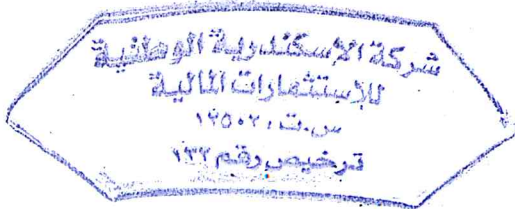 شركة الإسكندرية الوطنية
للإستثمارات المالية
س.ت: ١٩٥٠٢
ترخيص رقم ١٣٢